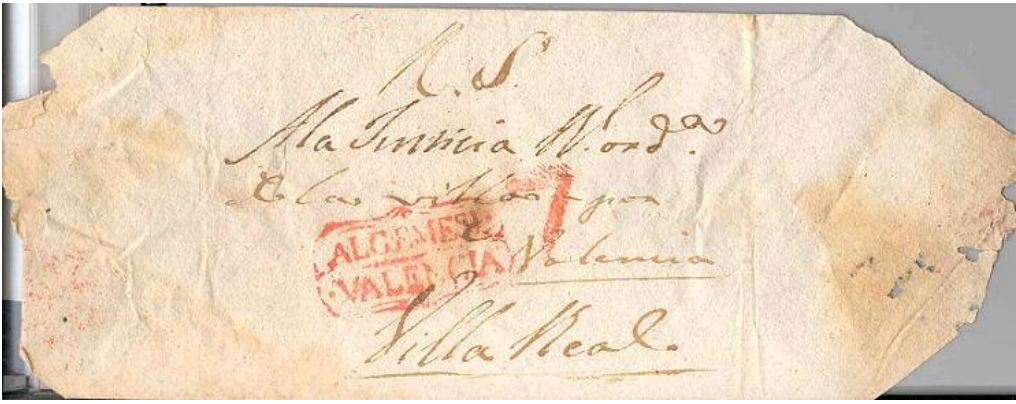 R. S.
A la Justicia R.l ord.a
De la villa por
7
ALGEMESI
VALENCIA
Valencia
Villa Real.